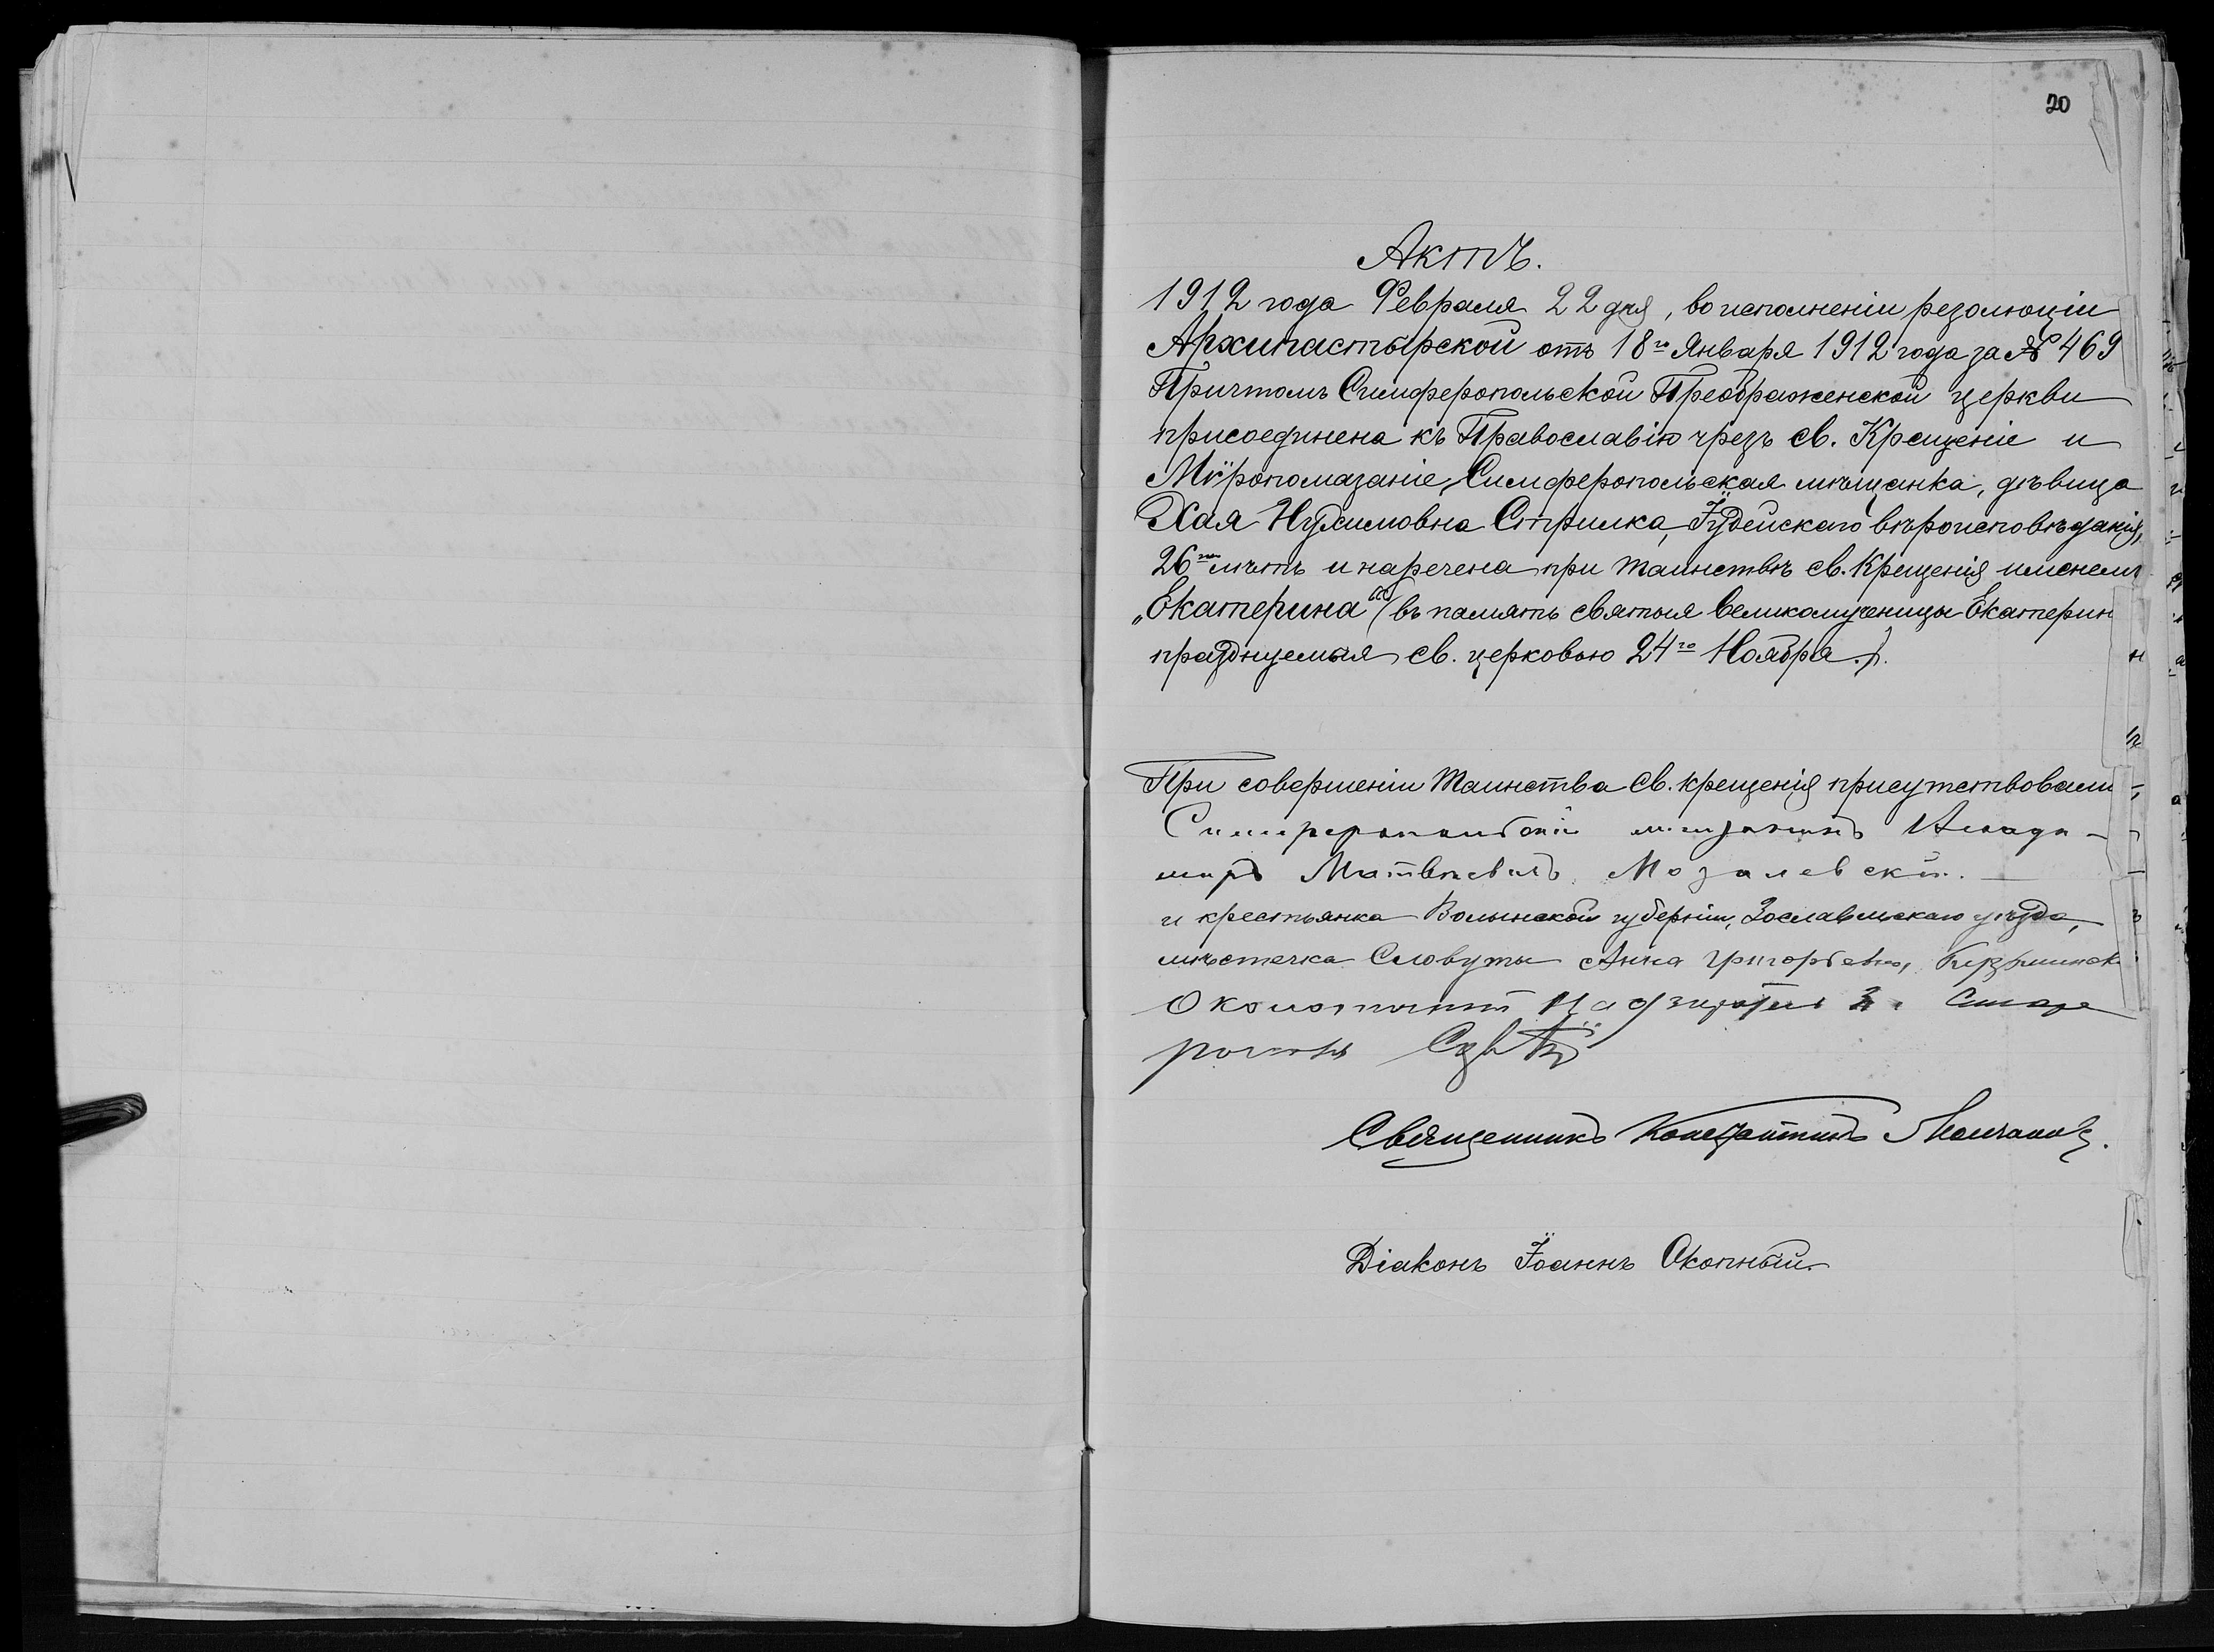 20
Актъ.
1912 года Февраля 22 дня, во исполненіи резолюціи
Архипастырской отъ 18го Января 1912 года за № 469
Причтомъ Симферопольской Преображенской церкви
присоединена къ Православію чрезъ св. Крещеніе и
Мѵропомазаніе, Симферопольская мѣщанка, дѣвица
Хая Нухимовна Стрилка, Іудейскаго вѣроисповѣданія,
26ти лѣтъ и наречена при таинствѣ св. Крещенія именемъ
„Екатерина“ (въ память святыя великомученицы Екатерин
празднуемыя св. церковью 24го Ноября.).
При совершеніи Таинства св. крещенія присутствовали
Симферопольскій мѣщанинъ
Матвѣевичъ Мозалевскій.
и крестьянка Волынской губерніи, Заславльскаго уѣзда,
мѣстечка Славуты Анна Григорьевна,
Околоточный Надзиратель
Священникъ Константинъ Молчановъ.
Діаконъ Іоаннъ Окопный.